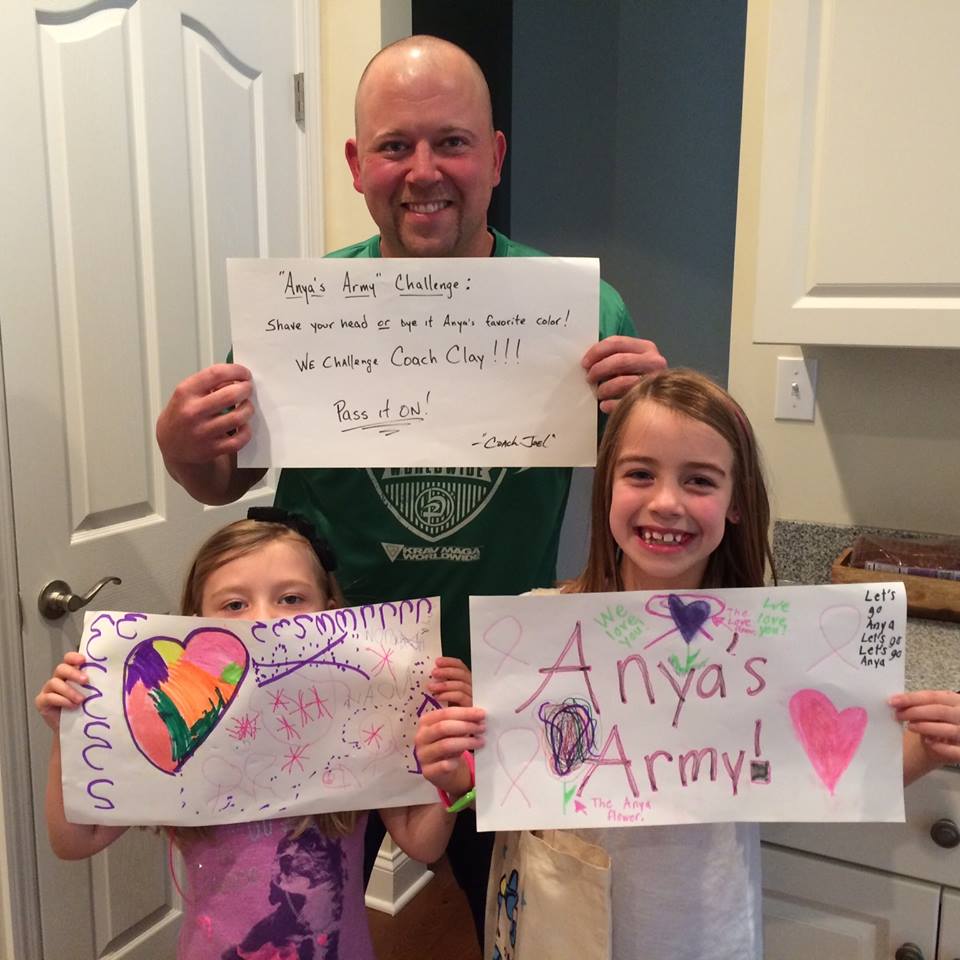 "Anya's Army" Challenge:
Shave your head or Dye it Anya's favorite color!
WE Challenge Coach Clay!!!
Pass it ON!
-"Coach Joel"
WORLDWIDE
KRAV MAGA
WORLDWIDE
We
love
you!
The
Love
flower
We
love
you!
Let's
go
Anya
Let's go
Let's go
Anya
Anya's
Army!
The Anya
flower.